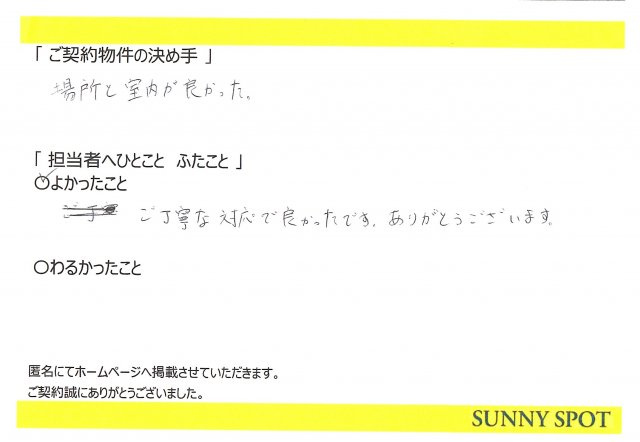 「 ご契約物件の決め手 」
場所と室内が良かった。
「 担当者へひとこと ふたこと 」
○よかったこと
ご丁寧な対応で良かったです。ありがとうございます。
○わるかったこと
匿名にてホームページへ掲載させていただきます。
ご契約誠にありがとうございました。
SUNNY SPOT